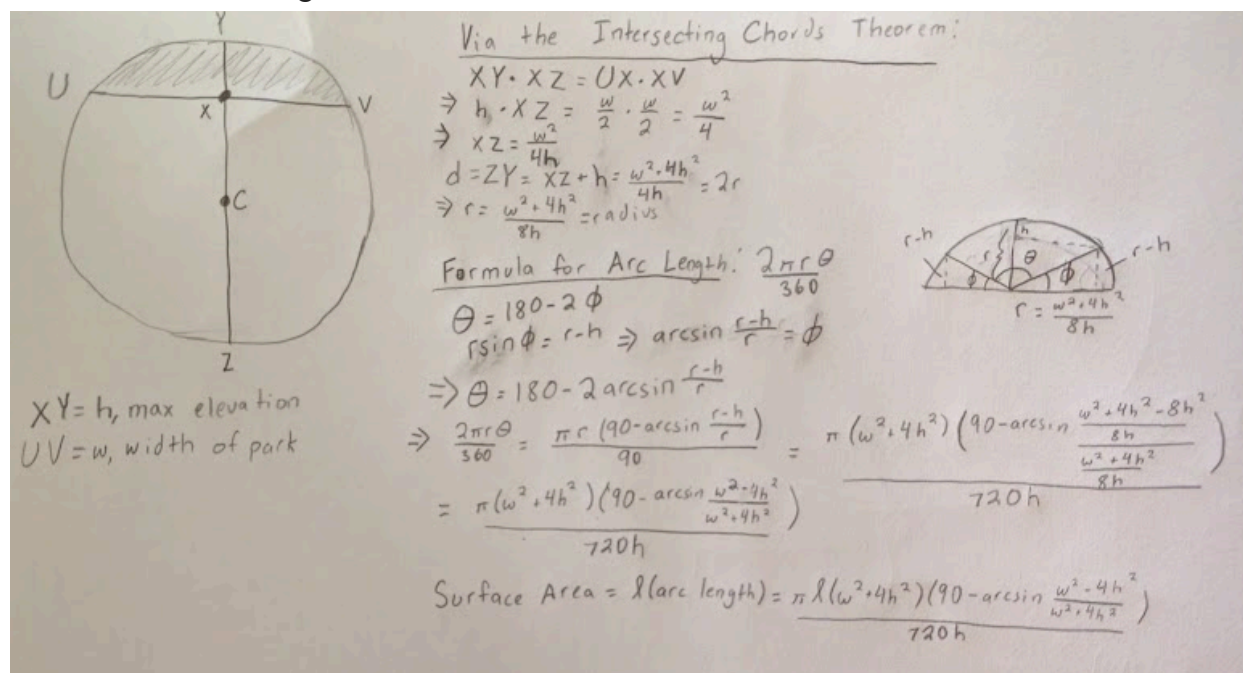 Y
U
X
V
C
Z
XY = h, max elevation
UV = w, width of park
Via the Intersecting Chords Theorem:
XY · XZ = UX · XV
⇒ h · XZ = w/2 · w/2 = w²/4
⇒ XZ = w²/4h
d = ZY = XZ + h = (w² + 4h²)/4h = 2r
⇒ r = (w² + 4h²)/8h = radius
Formula for Arc Length: 2πrθ/360
θ = 180 - 2ϕ
rsinϕ = r-h ⇒ arcsin (r-h)/r = ϕ
⇒ θ = 180 - 2 arcsin (r-h)/r
⇒ 2πrθ/360 = πr (90 - arcsin (r-h)/r)/90 = π(w² + 4h²)(90 - arcsin ((w² + 4h² - 8h²)/8h)/((w² + 4h²)/8h))/720h
= π(w² + 4h²)(90 - arcsin (w² - 4h²)/(w² + 4h²))/720h
Surface Area = l(arc length) = πl(w² + 4h²)(90 - arcsin (w² - 4h²)/(w² + 4h²))/720h
r-h
h
r
θ
ϕ
ϕ
r-h
r = (w² + 4h²)/8h